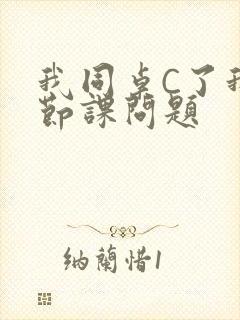 我同卓C了我
節課問題
納蘭惜1